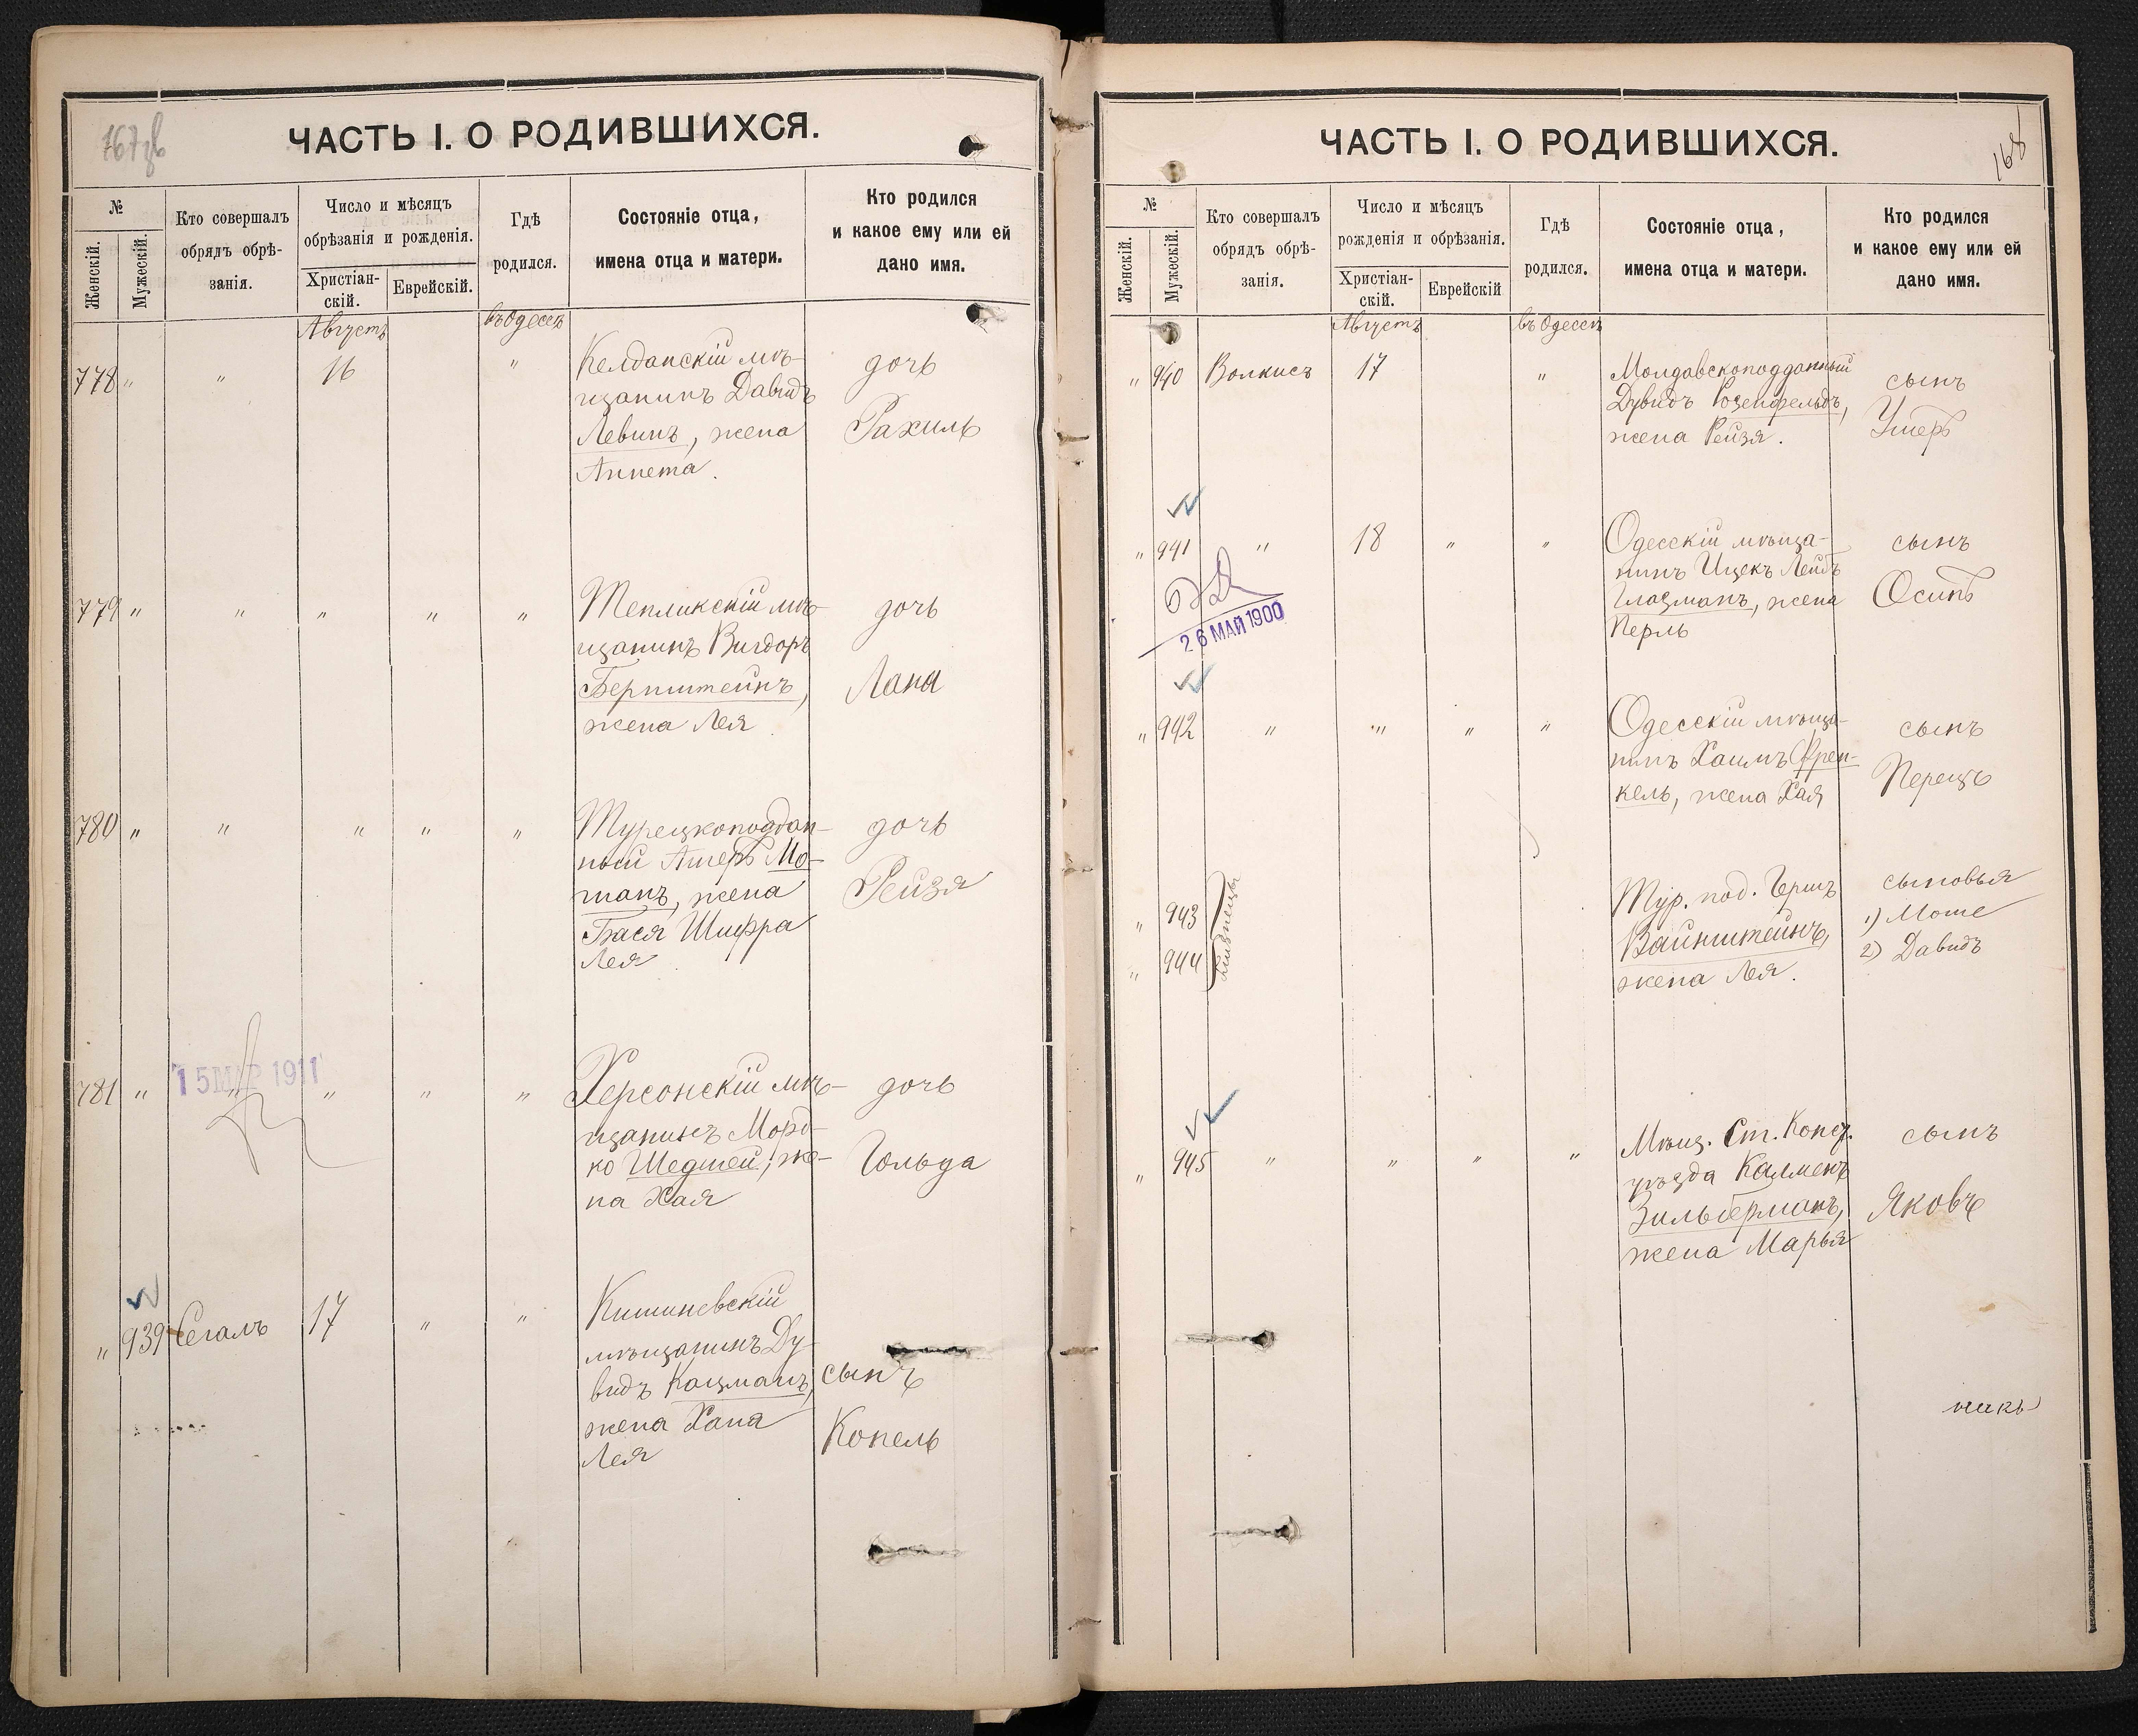 167 зв
ЧАСТЬ І. О РОДИВШИХСЯ.
№
Женскій.
Мужескій.
Кто совершалъ
обрядъ обрѣ-
занія.
Число и мѣсяцъ
обрѣзанія и рожденія.
Христіан-
скій.
Еврейскій.
Гдѣ
родился.
Состояніе отца,
имена отца и матери.
Кто родился
и какое ему или ей
дано имя.
Августъ
въ Одессѣ
778 " " 16 "
Келданскій мѣ-
щанинъ Давидъ
Левинъ, жена
Аннета.
дочь
Рахиль
779 " " " " "
Тепликскій мѣ-
щанинъ Вигдоръ
Бернштейнъ,
жена Лея
дочь
Лана
780 " " " " "
Турецкоподдан-
ный Ашеръ Мо-
шанъ, жена
Бася Шифра
Лея
дочь
Рейзя
781 " " " " "
15 МАР 1911
Херсонскій мѣ-
щанинъ Морд-
ко Шедшей, же-
на Хая
дочь
Гольда
" 939 Сегалъ 17 " "
Кишиневскій
мѣщанинъ Ду-
видъ Кацманъ,
жена Хана
Лея
сынъ
Копель
168
ЧАСТЬ І. О РОДИВШИХСЯ.
№
Женскій.
Мужескій.
Кто совершалъ
обрядъ обрѣ-
занія.
Число и мѣсяцъ
рожденія и обрѣзанія.
Христіан-
скій.
Еврейскій
Гдѣ
родился.
Состояніе отца,
имена отца и матери.
Кто родился
и какое ему или ей
дано имя.
Августъ
въ Одессѣ
" 940 Волкисъ 17 "
Молдавскоподданный
Дувидъ Розенфельдъ,
жена Рейзя.
сынъ
Ушеръ
" 941 " 18 " "
26 МАЙ 1900
Одесскій мѣща-
нинъ Ицекъ Лейбъ
Глазманъ, жена
Перль
сынъ
Осипъ
" 942 " " " "
Одесскій мѣща-
нинъ Хаимъ Френ-
кель, жена Хая
сынъ
Перецъ
" 943
" 944
близнецы
Тур. под. Гершъ
Вайнштейнъ,
жена Лея.
сыновья
1) Моше
2) Давидъ
" 945 " " " "
Мѣщ. Ст. Конст.
уѣзда Калменъ
Зильберманъ,
жена Марья
сынъ
Яковъ